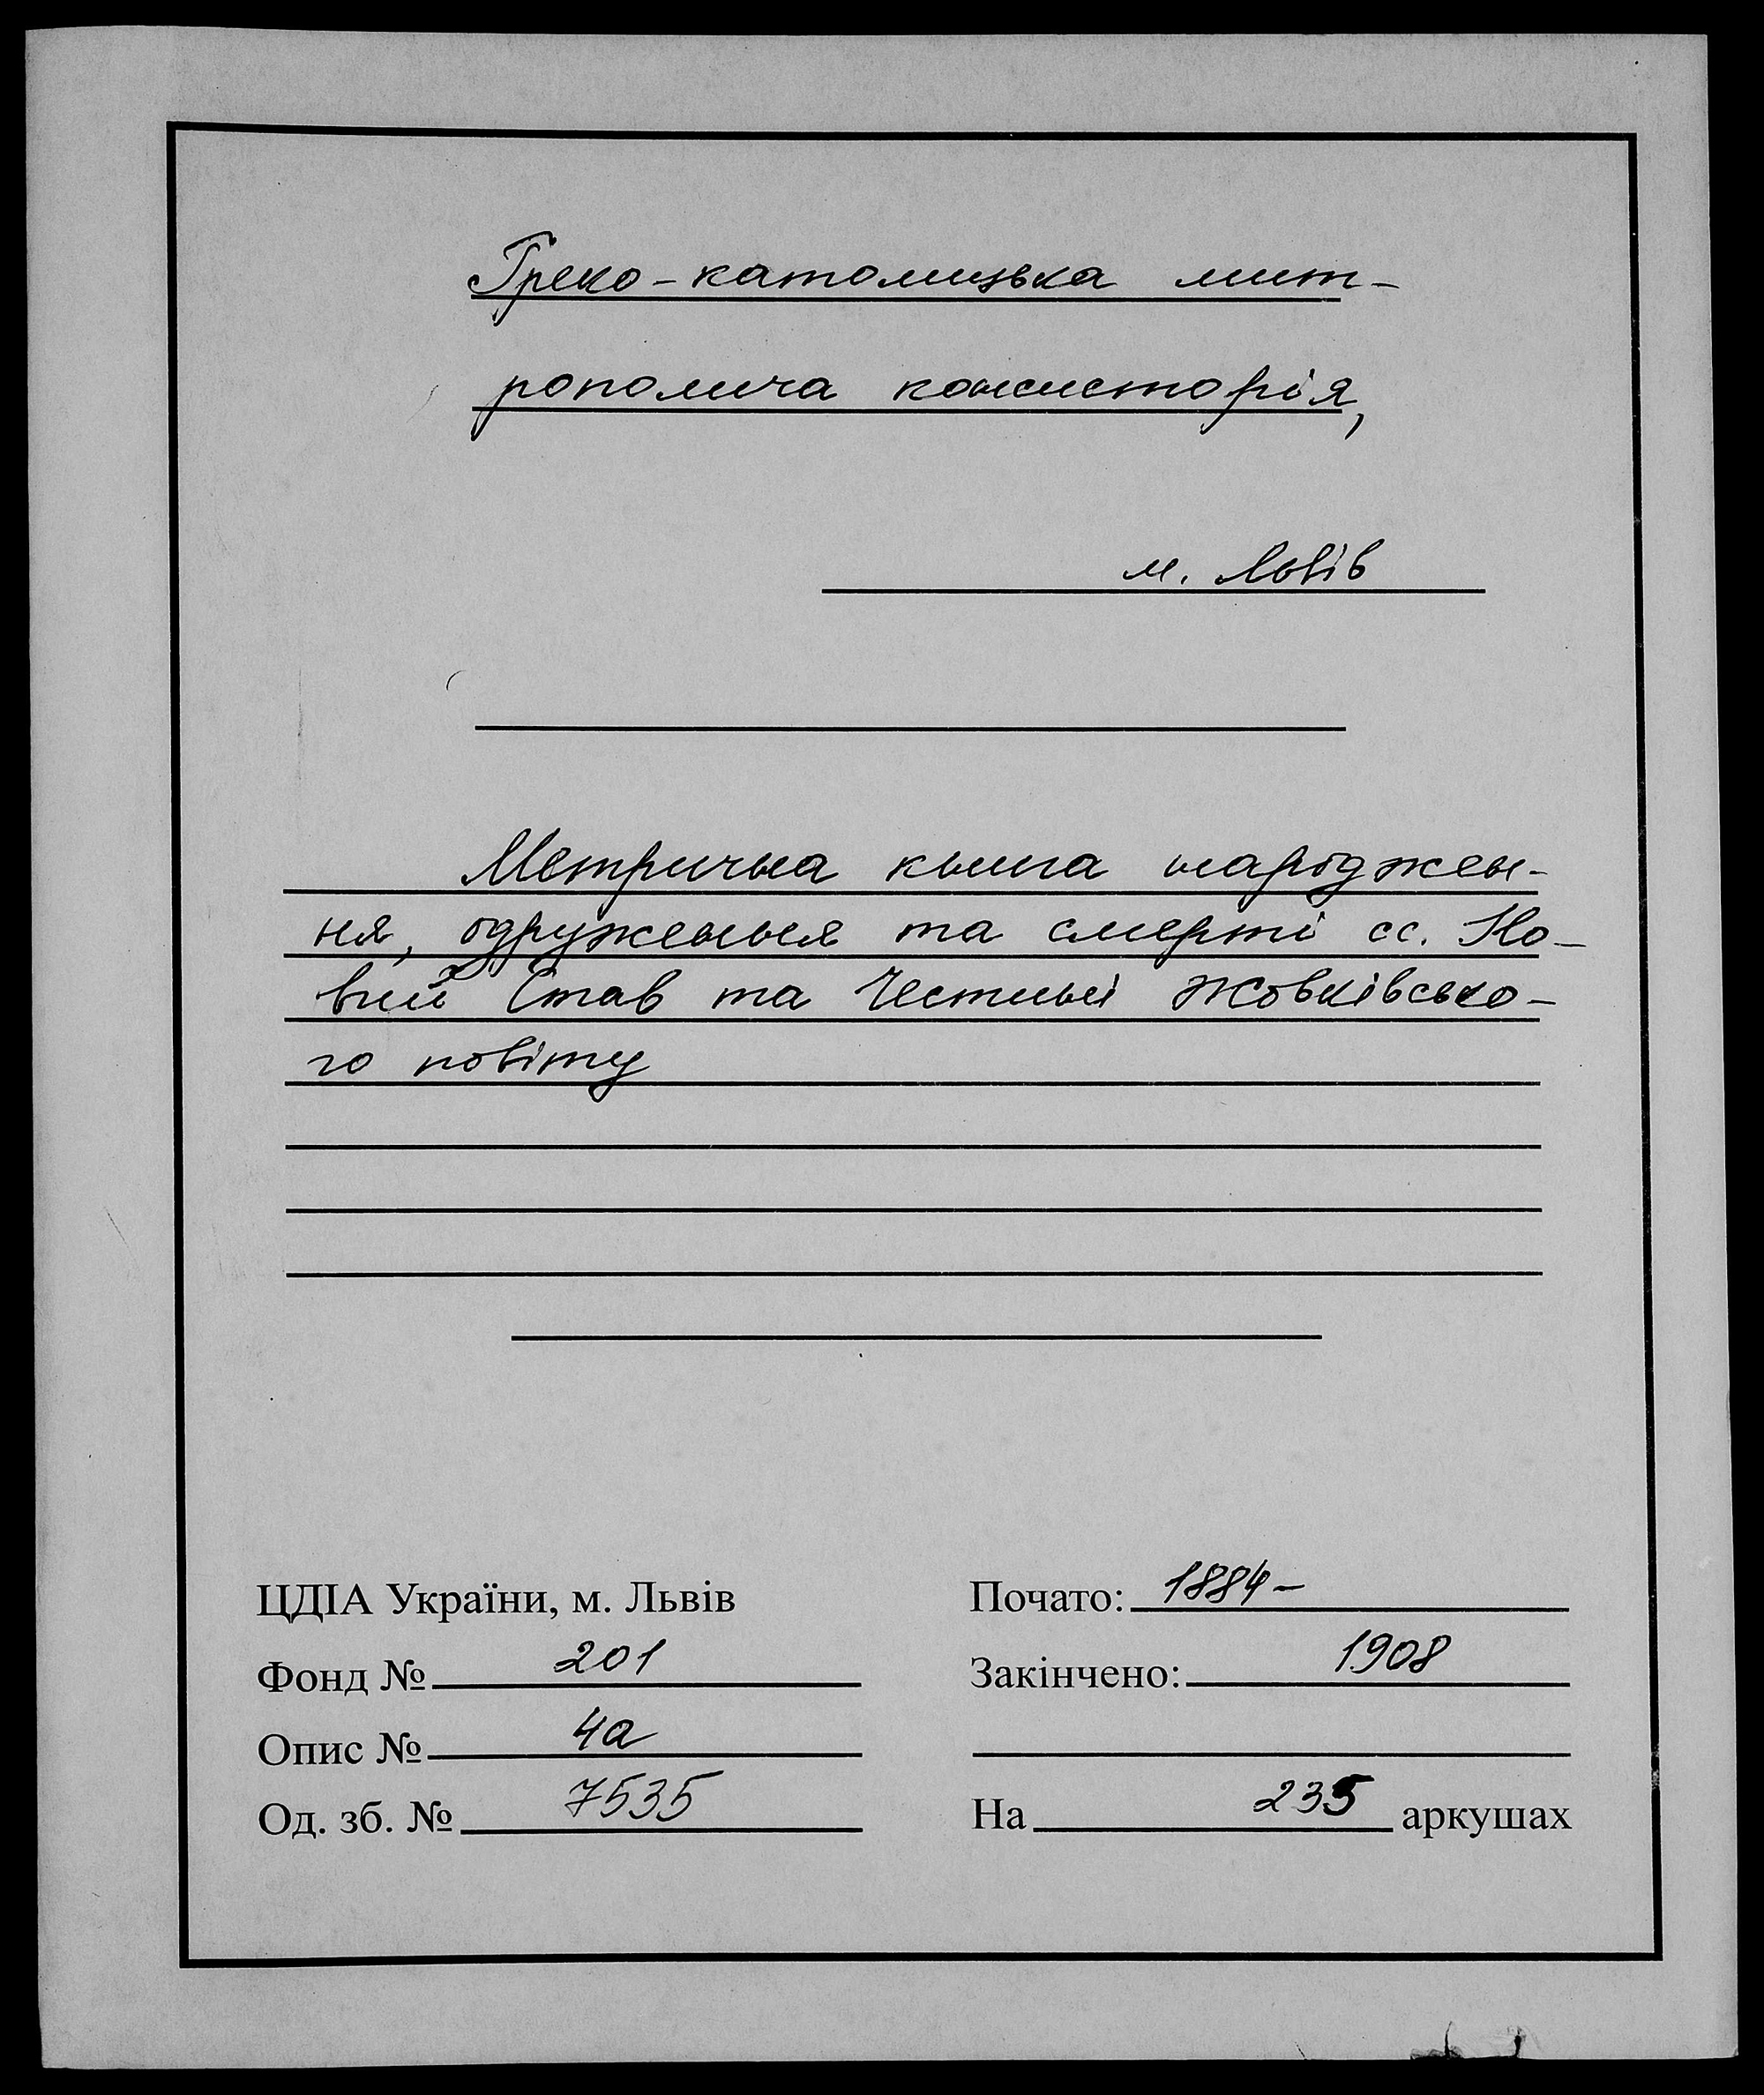 Греко-католицька мит-
рополича консисторія,
м. Львів
Метрична книга народжен-
ня, одруження та смерті сс. Но-
вий Став та Честині Жовківсько-
го повіту
ЦДІА України, м. Львів
Фонд № 201
Опис № 4а
Од. зб. № 7535
Почато: 1884-
Закінчено: 1908
На 235 аркушах